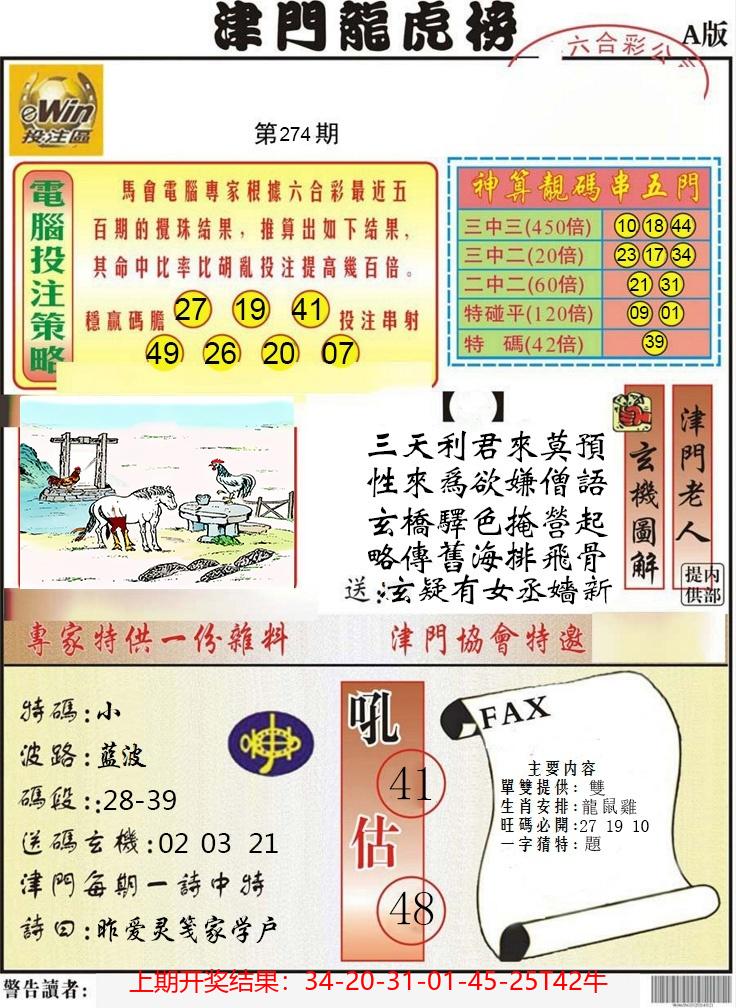 津門龍虎榜
A版
六合彩公
eWin
投注區
第274期
電腦投注策略
馬會電腦專家根據六合彩最近五
百期的攪珠結果，推算出如下結果，
其命中比率比胡亂投注提高幾百倍。
穩贏碼膽 27 19 41 投注串射
49 26 20 07
神算靚碼串五門
三中三(450倍) 10 18 44
三中二(20倍) 23 17 34
二中二(60倍) 21 31
特碰平(120倍) 09 01
特 碼(42倍) 39
【 】
三天利君來莫預
性來為欲嫌僧語
玄橋驛色掩營起
略傳舊海排飛骨
送:玄疑有女丞嬙新
玄機圖解
津門老人
内部提供
專家特供一份雜料
津門協會特邀
特碼:小
波路:蓝波
碼段::28-39
送碼玄機:02 03 21
津門每期一詩中特
詩曰:昨爱灵笺家学户
吼
41
估
48
FAX
主要内容
單雙提供: 雙
生肖安排:龍鼠雞
旺码必開:27 19 10
一字猜特:題
警告讀者:
上期开奖结果：34-20-31-01-45-25T42牛